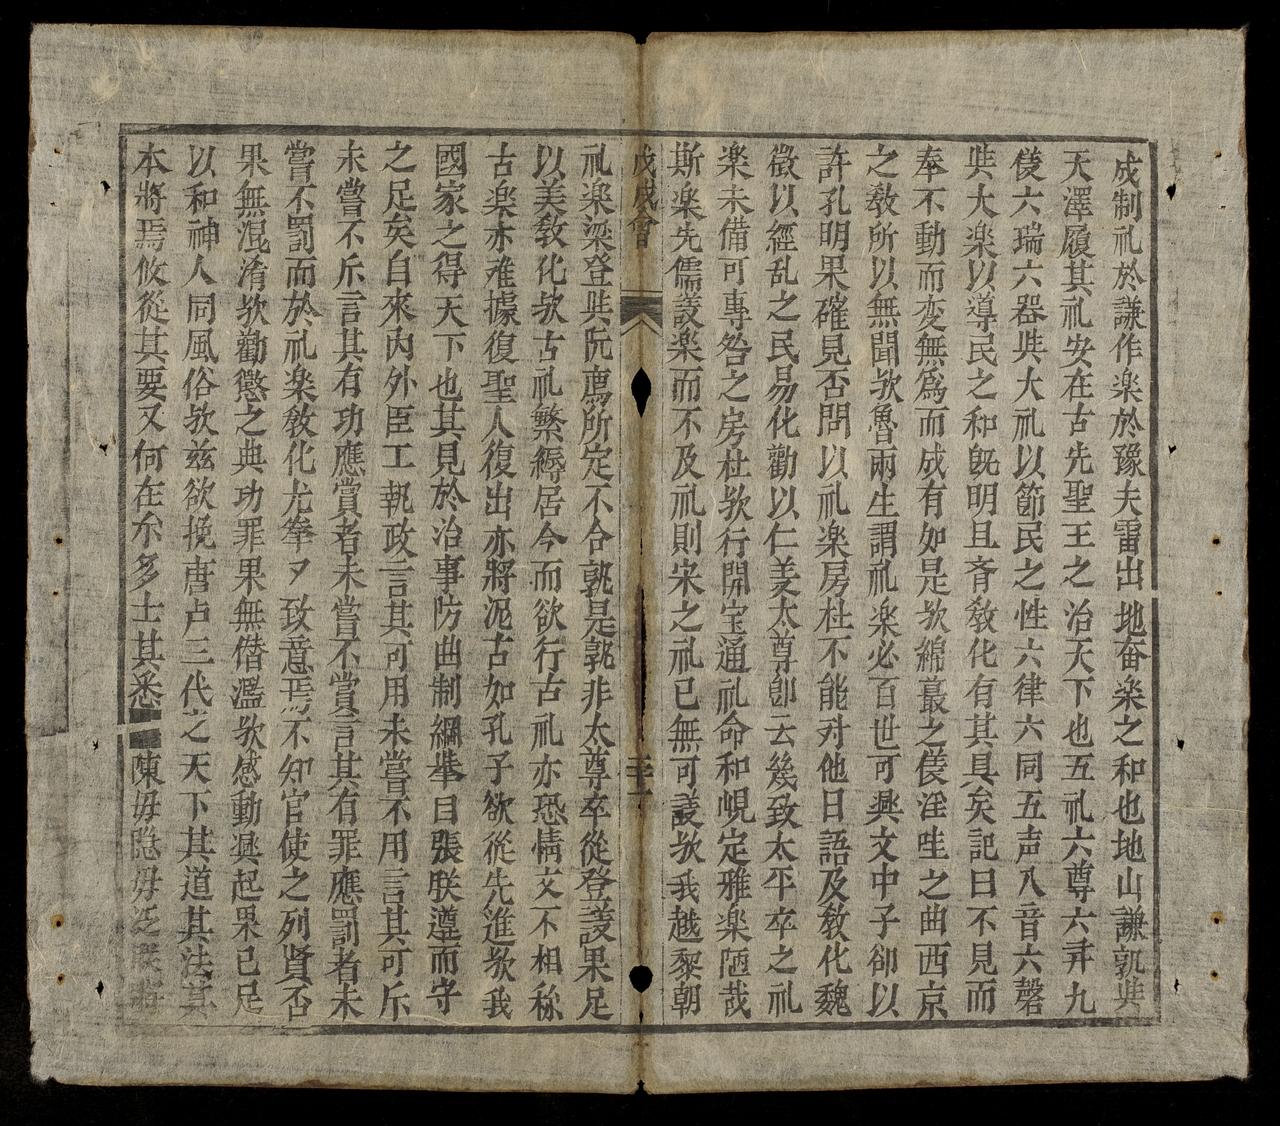 成制礼於謙作楽於豫夫雷出地奋楽之和也地山謙孰與
天澤履其礼安在古先聖王之治天下也五礼六尊六彛九
儀六瑞六器與大礼以節民之性六律六同五声八音六磬
與大楽以導民之和既明且斉教化有其具矣記曰不見而
奉不動而変無為而成有如是欤綿蕞之儀淫哇之曲西京
之教所以無聞欤魯兩生謂礼楽必百世可興文中子卻以
許孔明果確見否問以礼楽房杜不能对他日語及教化魏
徵以經乱之民易化勸以仁義太尊卽云幾致太平卒之礼
楽未備可專咎之房杜欤行開宝通礼命和峴定雅楽陋哉
斯楽先儒議楽而不及礼則宋之礼已無可議欤我越黎朝
戊戌會
三十一
礼楽梁登與阮廌所定不合孰是孰非太尊卒從登議果足
以美教化欤古礼繁縟居今而欲行古礼亦恐情文不相称
古楽亦难據復聖人復出亦將泥古如孔子欲從先進欤我
國家之得天下也其見於治事防曲制綱舉目張朕遵而守
之足矣自來内外臣工執政言其可用未嘗不用言其可斥
未嘗不斥言其有功應賞者未嘗不賞言其有罪應罰者未
嘗不罰而於礼楽教化尤拳々致意焉不知官使之列賢否
果無混淆欤勸懲之典功罪果無僭濫欤感動興起果已足
以和神人同風俗欤兹欲挽唐卢三代之天下其道其法其
本將焉攸從其要又何在尒多士其悉陳毋隐毋泛朕將